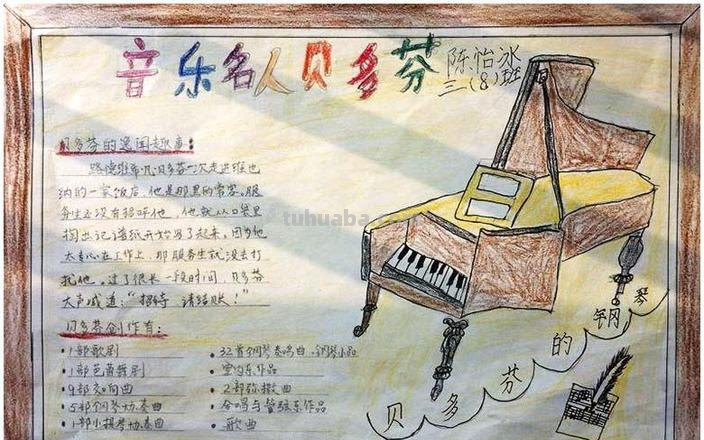 音乐名人贝多芬
陈怡冰
三(8)班
贝多芬的逸闻趣事:
路德维希·凡·贝多芬一次走进维也
纳的一家饭店,他是那里的常客。服
务生还没有招呼他,他就从口袋里
掏出记谱纸开始写了起来。因为他
太专心在工作上,那服务生就没去打
扰他。过了很长一段时间,贝多芬
大声喊道:“招待,请结账!”
贝多芬创作有:
·1部歌剧
·1部芭蕾舞剧
·9部交响曲
·5部钢琴协奏曲
·1部小提琴协奏曲
·32首钢琴奏鸣曲,钢琴小品
·室内乐作品
·2部弥撒曲
·合唱与管弦乐作品
·歌曲
贝多芬的钢琴
tuhuaba.c